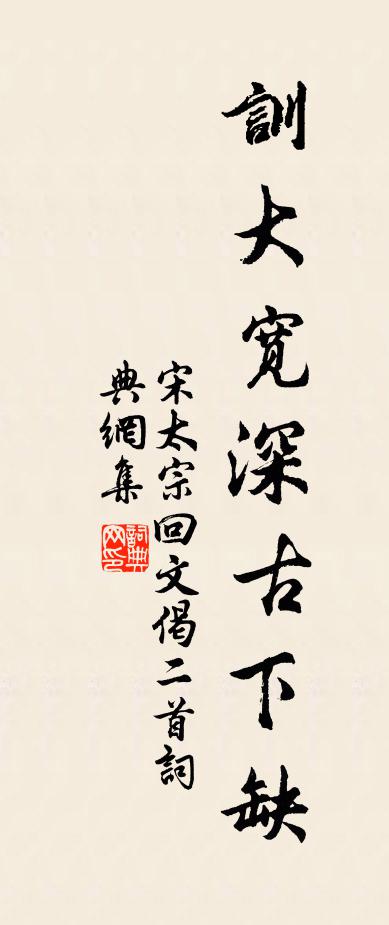 訓大寬深古下缺
宋太宗回文偈二首詞
典網集
詞典網印